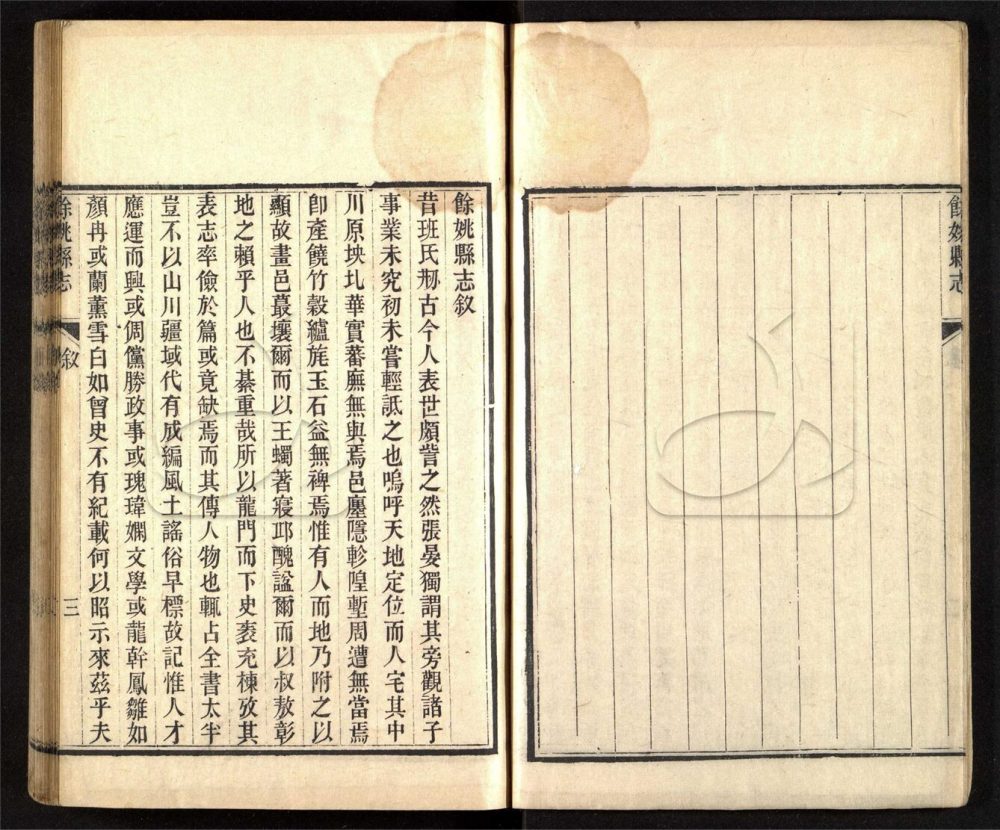 餘姚縣志
餘姚縣志叙
昔班氏刱古今人表世頗訾之然張晏獨謂其旁觀諸子
事業未究初未嘗輕詆之也嗚呼天地定位而人宅其中
川原坱圠華實蕃廡無與焉邑廛隱軫隍塹周遭無當焉
卽產饒竹穀纑旄玉石益無裨焉惟有人而地乃附之以
顯故畫邑蕞壤爾而以王蠋著寢邱醜諡爾而以叔敖彰
地之賴乎人也不綦重哉所以龍門而下史袠充棟攷其
表志率儉於篇或竟缺焉而其傳人物也輒占全書太半
豈不以山川疆域代有成編風土謠俗早標故記惟人才
應運而興或倜儻勝政事或瑰瑋嫻文學或龍幹鳳雛如
顏冉或蘭薰雪白如曾史不有紀載何以昭示來茲乎夫
餘姚縣志
叙
三